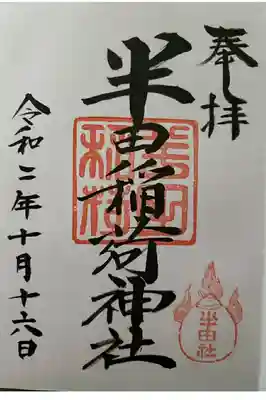 奉拝
半田稲荷神社
令和二年十月十六日
半田社